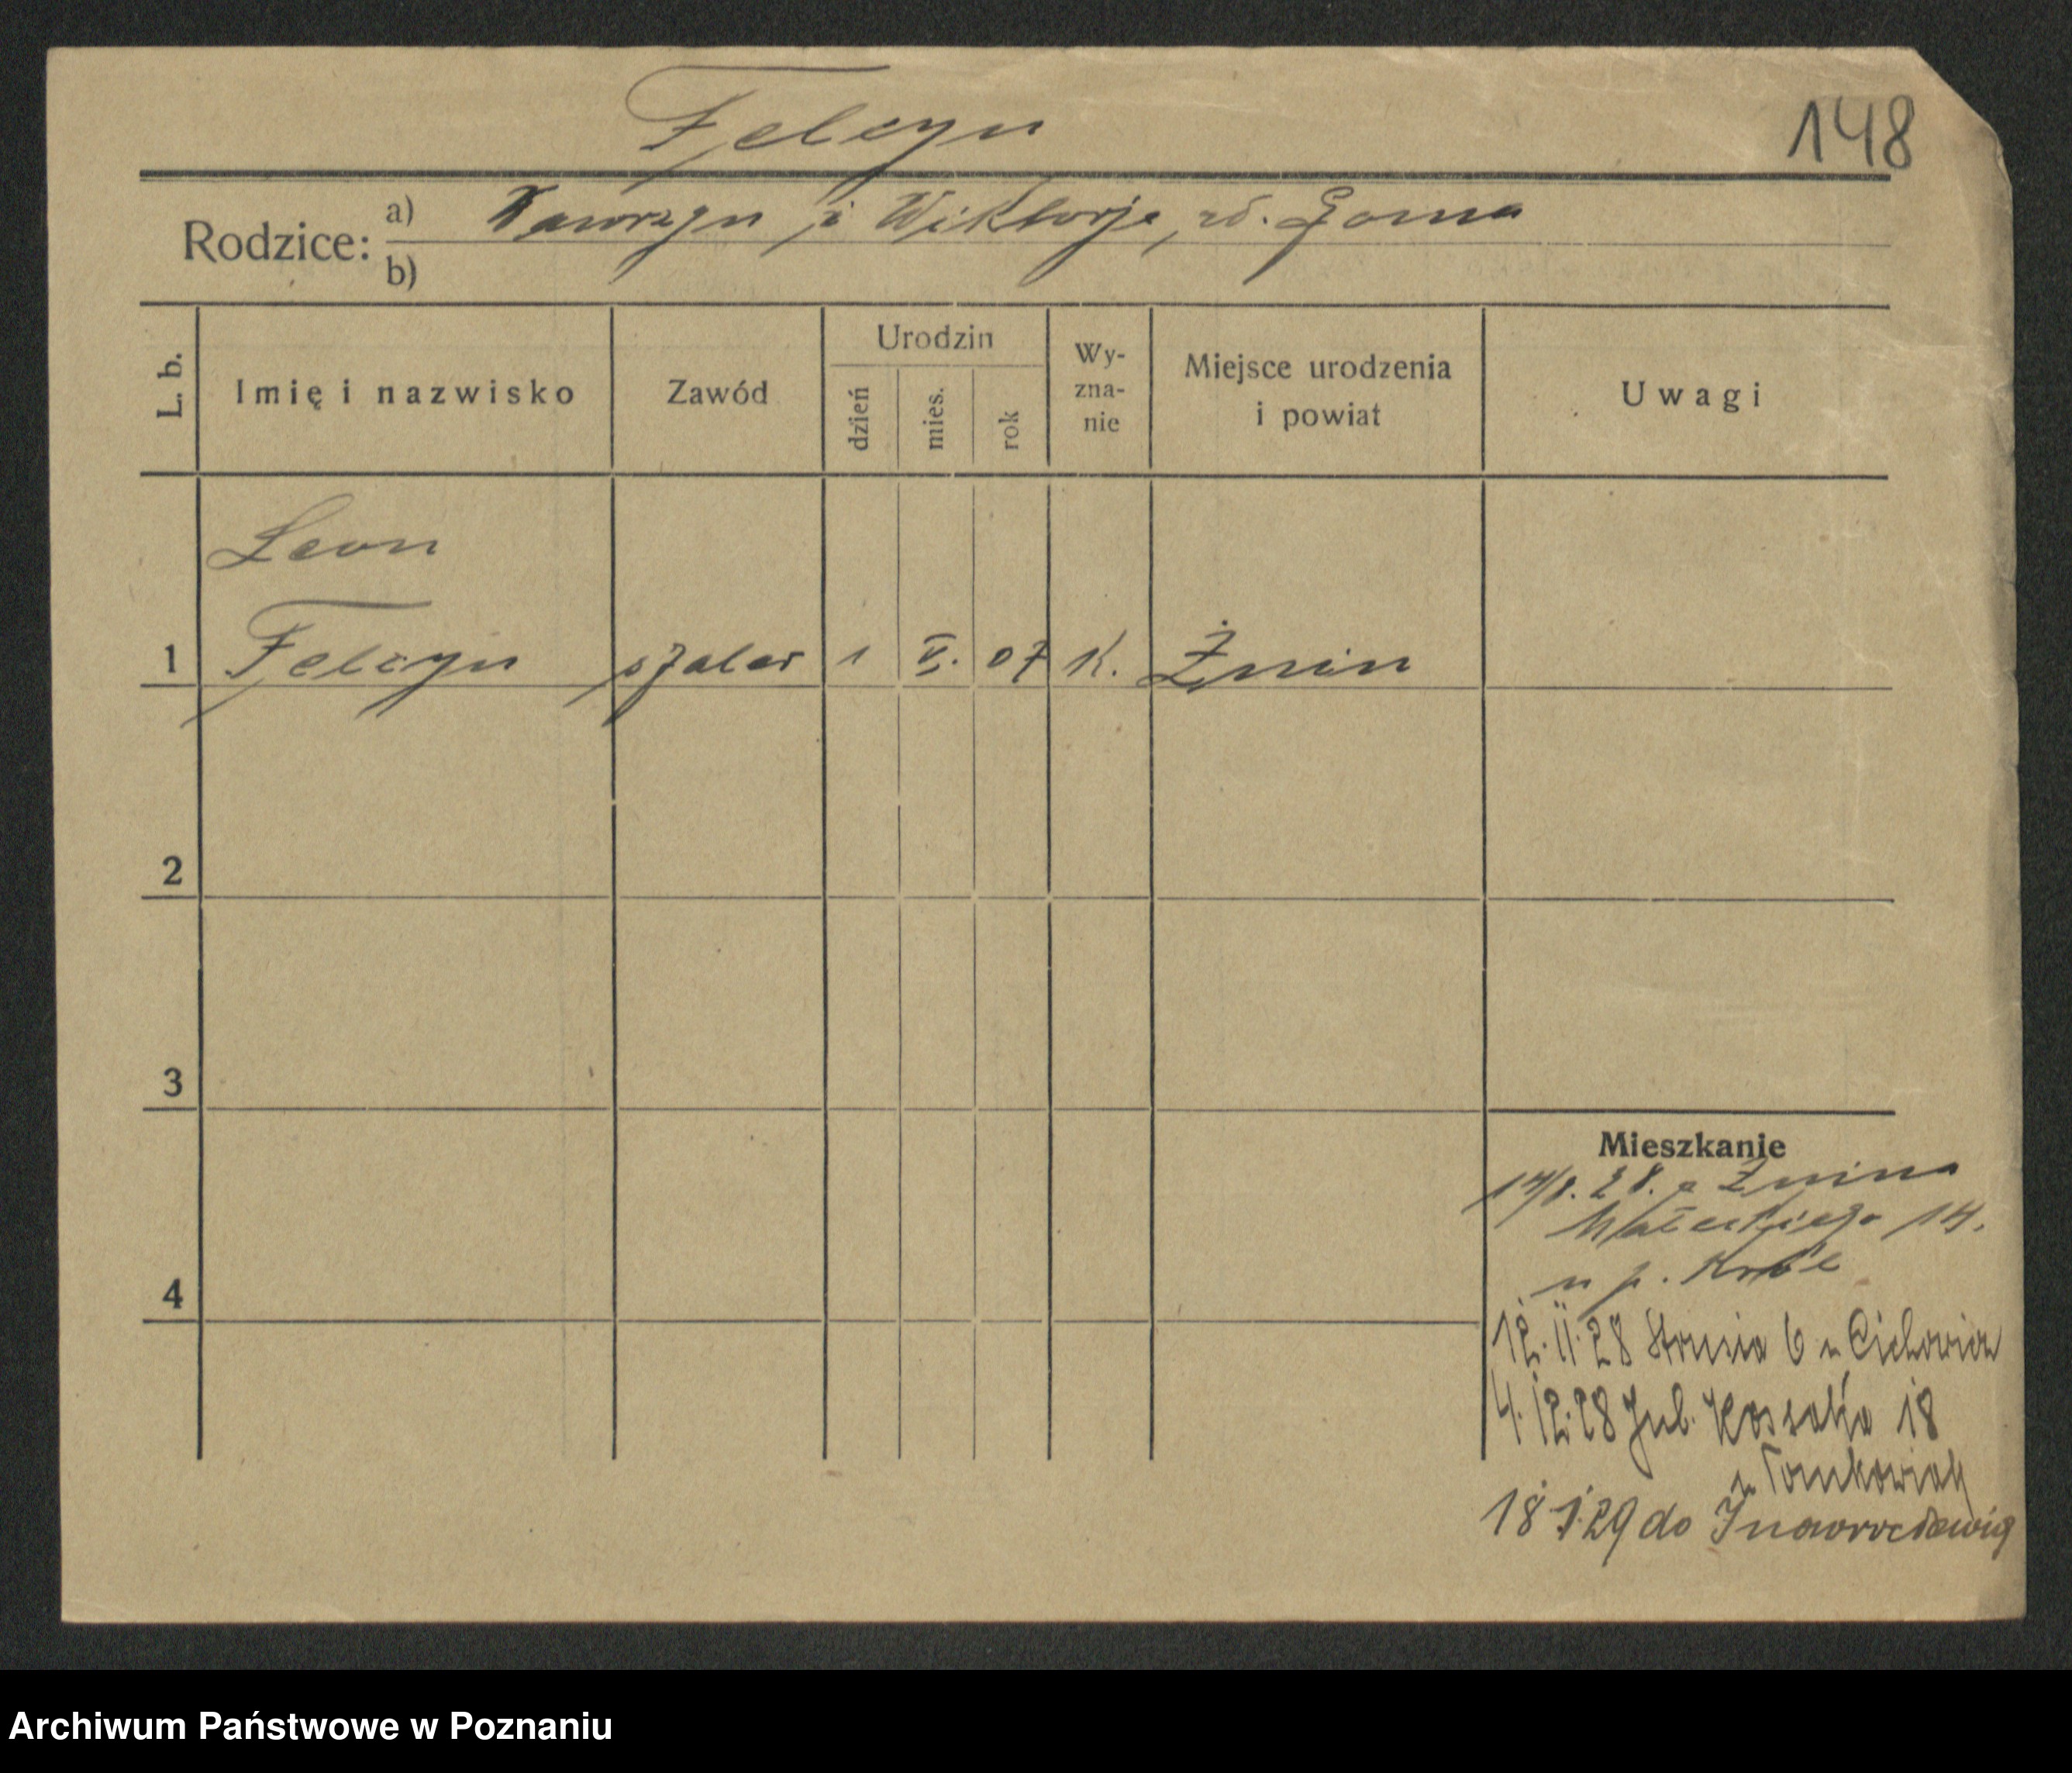 Felcyn
148
Rodzice:
a) Wawrzyn i Wiktorja, rd. Goma
b)
L. b.
Imię i nazwisko
Zawód
Urodzin
dzień
mies.
rok
Wy-
zna-
nie
Miejsce urodzenia
i powiat
Uwagi
Leon
1 Felcyn 1 V. 07 K. Żnin
2
3
4
Mieszkanie
28. z Żnina
Małeckiego 14.
u p. Król
12.11.28 Strusia 6 u Cichowicz
4.12.28 Jul. Kossaka 18
u Tomkowiak
18 1.29 do Inowrocławia
Archiwum Państwowe w Poznaniu